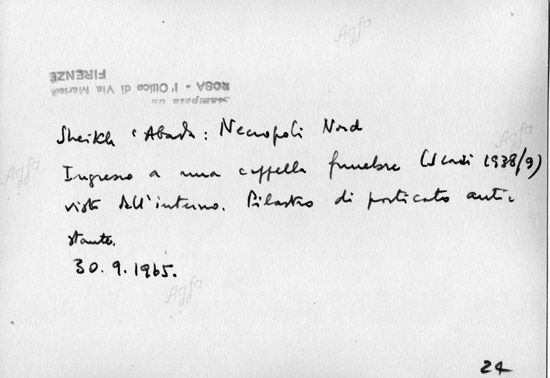 Stampata da
ROSA - l'Ottico di Via Martelli
FIRENZE
Sheikh 'Abada: Necropoli Nord
Ingresso a una cappella funebre (Scavi 1938/9)
vista dall'interno. Pilastro di porticato anti-
stante.
30.9.1965.
24
Agfa
Agfa
Agfa
Agfa